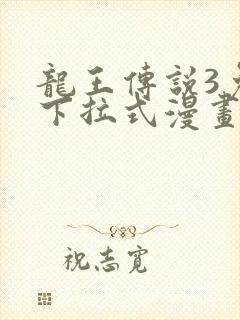 龍王傳說3
下拉式漫畫
祝志寬